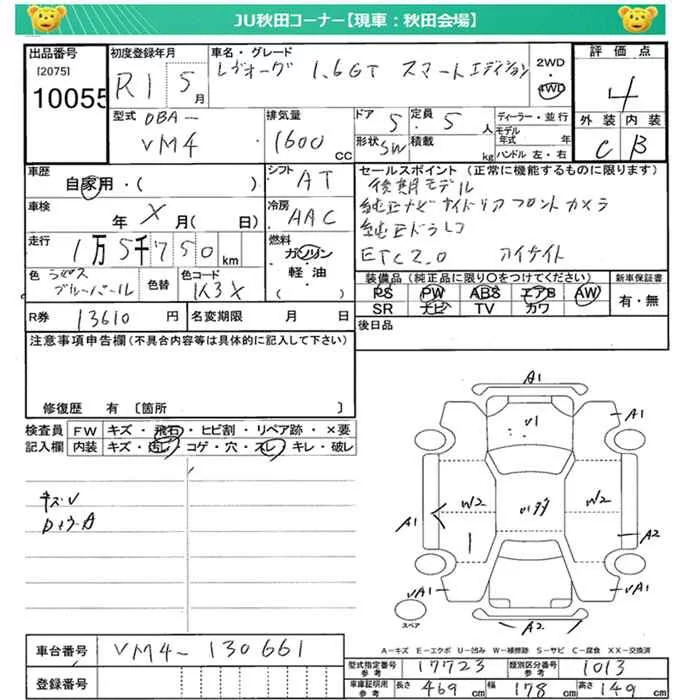 JU秋田コーナー【現車：秋田会場】
出品番号 初度登録年月 車名・グレード 2WD 評価点
[2075] 10055 R1 5月 レヴォーグ 1.6GT スマートエディション 4WD 4
型式 DBA- VM4 排気量 1600 CC ドア 5 定員 5人 ディーラー・並行 外装 内装
形状 SW 積載 kg モデル年式 年 ハンドル 左・右 C B
車歴 自家用・( ) シフト AT セールスポイント (正常に機能するものに限ります)
後期モデル
車検 年 X 月( 日) 冷房 AAC 純正ナビ サイドリア フロントカメラ
純正ドラレコ
走行 1万5千750km 燃料 ガソリン 軽・油 ( ) ETC2.0 アイサイト
色 ラピス ブルーパール 色替 色コード K3X 装備品 (純正品に限り〇をつけてください) 新車保証書
PS PW ABS エアB AW 有・無
SR ナビ TV カワ
R券 13610円 名変期限 月 日 後日品
注意事項申告欄(不具合内容等は具体的に記入して下さい)
修復歴 有 [箇所 ]
検査員 FW キズ・飛石・ヒビ割・リペア跡・×要
記入欄 内装 キズ・汚レ・コゲ・穴・スレ・キレ・破レ
キズ・V
A1
V1
A1
W2 W2
A1
A2
VA1 VA1
A2
スペア
A－キズ E－エクボ U－凹み W－補修跡 S－サビ C－腐食 XX－交換済
車台番号 VM4-130661
登録番号
型式指定番号 参考 17723 類別区分番号 参考 1013
車庫証明用 参考 長さ 469 cm 幅 178 cm 高さ 149 cm